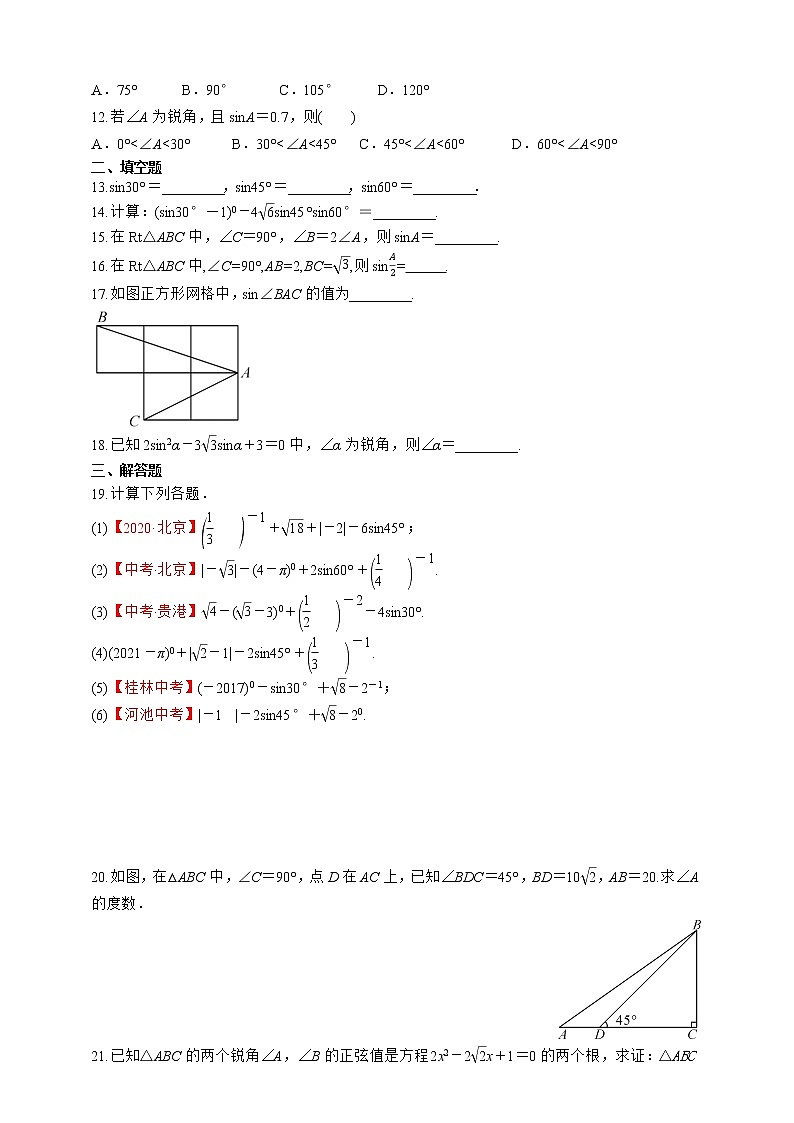 A.75° B.90° C.105° D.120°
12.若∠A为锐角,且sinA=0.7,则( )
A.0°<∠A<30° B.30°<∠A<45° C.45°<∠A<60° D.60°<∠A<90°
二、填空题
13.sin30°=________,sin45°=________,sin60°=________.
14.计算:(sin30°-1)⁰-4√6sin45°sin60°=________.
15.在Rt△ABC中,∠C=90°,∠B=2∠A,则sinA=________.
16.在Rt△ABC中,∠C=90°,AB=2,BC=√3,则sin A/2=_____.
17.如图正方形网格中,sin∠BAC的值为________.
B
A
C
18.已知2sin²α-3√3sinα+3=0中,∠α为锐角,则∠α=________.
三、解答题
19.计算下列各题.
(1)【2020·北京】(1/3)⁻¹+√18+|-2|-6sin45°;
(2)【中考·北京】|-√3|-(4-π)⁰+2sin60°+(1/4)⁻¹.
(3)【中考·贵港】√4-(√3-3)⁰+(1/2)⁻²-4sin30°.
(4)(2021-π)⁰+|√2-1|-2sin45°+(1/3)⁻¹.
(5)【桂林中考】(-2017)⁰-sin30°+√8-2⁻¹;
(6)【河池中考】|-1 |-2sin45°+√8-2⁰.
20.如图,在△ABC中,∠C=90°,点D在AC上,已知∠BDC=45°,BD=10√2,AB=20.求∠A
的度数.
B
45°
A D C
21.已知△ABC的两个锐角∠A,∠B的正弦值是方程2x²-2√2x+1=0的两个根,求证:△ABC